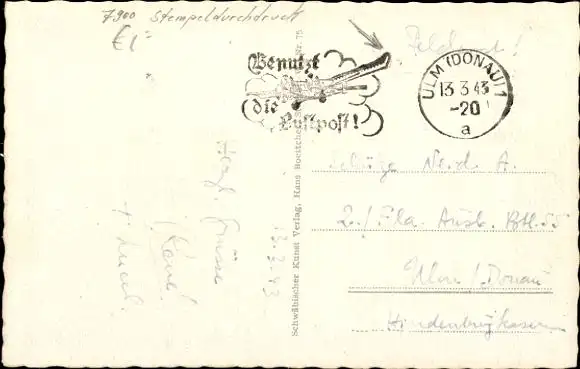 7900 Stempeldurchdruck
€1,-
Feldpost!
Benutzt
die
Luftpost!
ULM (DONAU) 1
13 3 43
-20
a
Schwäbischer Kunst Verlag, Hans Boettcher, Nr. 75
Herzl. Grüsse
13.3.43
Schütze A.
2./ Fla. Ausb. Btl. 55
Ulm /Donau
Hindenburgkaserne